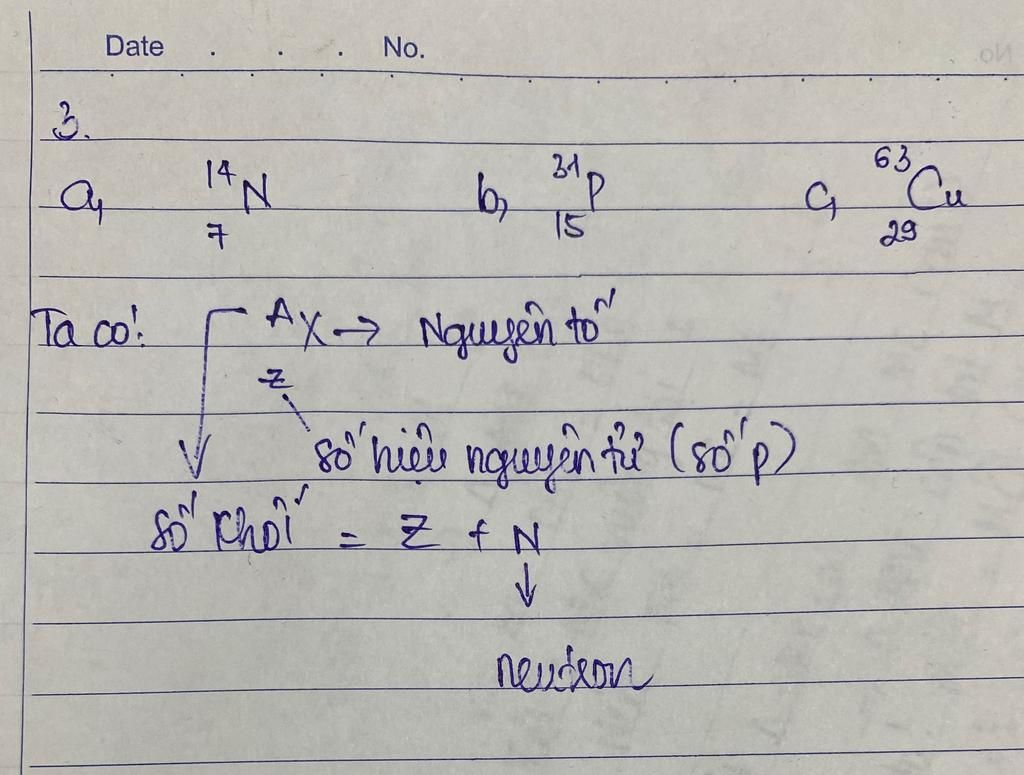 Date . . . No.
3.
a, ¹⁴₇N b, ³¹₁₅P c, ⁶³₂₉Cu
Ta có: ᴬX → Nguyên tố
Z
số hiệu nguyên tử (số p)
số khối = Z + N
↓
neutron